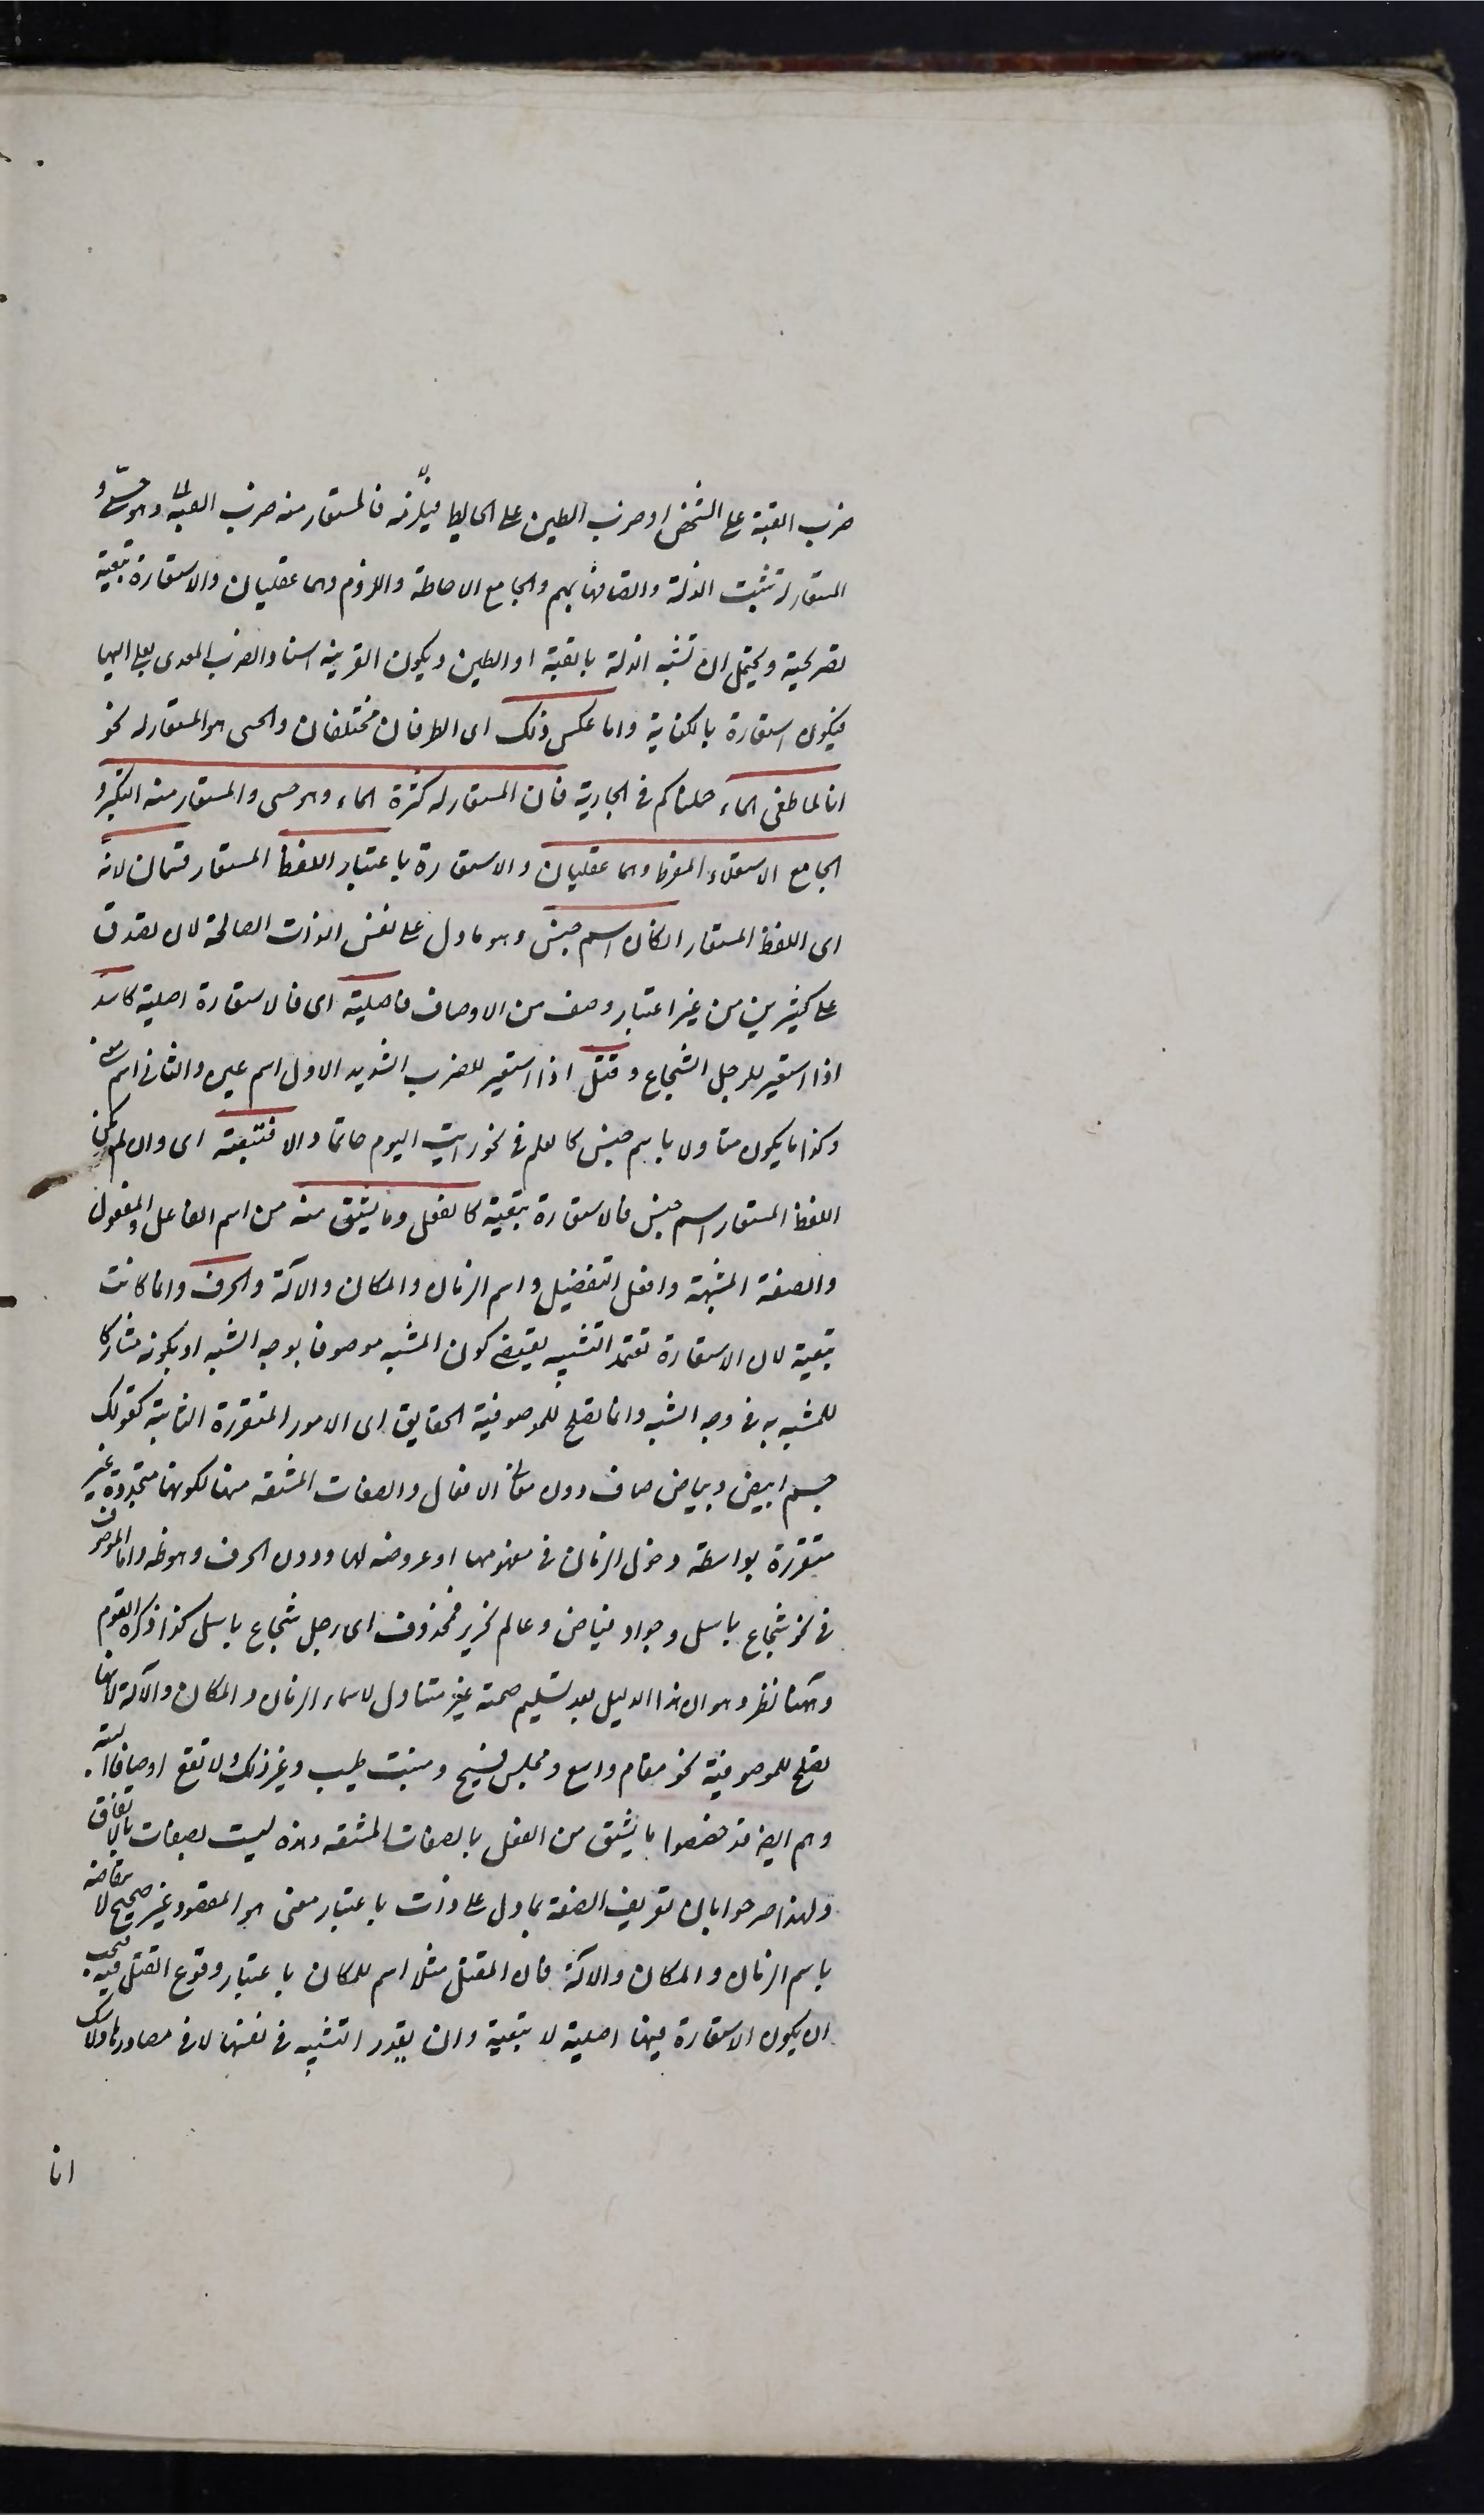 ضرب القبة على الشخص او ضرب الطين على الحايط فيلزمه فالمستعار منه ضرب القبة وهو حسى و
المستعار له تثبت الذلة والصاقها بهم والجامع الاحاطة واللزوم وهما عقليان والاستعارة تبعية
تصريحية ويحتمل ان تشبه الذلة بالقبة او الطين ويكون القرينة اسناد الضرب المعدى بعلى اليها
فيكون استعارة بالكناية واما عكس ذلك اى الطرفان مختلفان والحسى هو المستعار له نحو
انا لما طغى الماء حملناكم فى الجارية فان المستعار له كثرة الماء وهو حسى والمستعار منه التكبر و
الجامع الاستعلاء المفرط وهما عقليان والاستعارة باعتبار اللفظ المستعار قسمان لانه
اى اللفظ المستعار ان كان اسم جنس وهو ما دل على نفس الذات الصالحة لان تصدق
على كثيرين من غير اعتبار وصف من الاوصاف فاصلية اى فالاستعارة اصلية كاسد
اذا استعير للرجل الشجاع وقتل اذا استعير للضرب الشديد الاول اسم عين والثانى اسم معنى
وكذا ما يكون متاولا باسم جنس كالعلم فى نحو رايت اليوم حاتما والا فتبعية اى وان لم يكن
اللفظ المستعار اسم جنس فالاستعارة تبعية كالفعل وما يشتق منه من اسم الفاعل والمفعول
والصفة المشبهة وافعل التفضيل واسم الزمان والمكان والآلة والحرف وانما كانت
تبعية لان الاستعارة تعتمد التشبيه يقتضى كون المشبه موصوفا بوجه الشبه او بكونه مشاركا
للمشبه به فى وجه الشبه وانما تصلح للموصوفية الحقايق اى الامور المتقررة الثابتة كقولك
جسم ابيض وبياض صاف دون معانى الافعال والصفات المشتقة منها لكونها متجددة غير
متقررة بواسطة دخول الزمان فى مفهومها او عروضه لها ودون الحرف وهو ظ واما الموصوف
فى نحو شجاع باسل وجواد فياض وعالم نحرير فمحذوف اى رجل شجاع باسل كذا ذكره القوم
وههنا نظر وهو ان هذا الدليل بعد تسليم صحته غير متناول لاسماء الزمان والمكان والآلة لانها
تصلح للموصوفية نحو مقام واسع ومجلس فسيح ومنبت طيب وغير ذلك ولا تقع اوصافا البتة
وهم ايضا قد خصصوا ما يشتق من الفعل بالصفات المشتقة وهذه ليست بصفات بالاتفاق
ولهذا صرحوا بان تعريف الصفة بما دل على ذات باعتبار معنى هو المقصود غير صحيح لانتقاضه
باسم الزمان والمكان والآلة فان المقتل مثلا اسم للمكان باعتبار وقوع القتل فيه فيجب
ان يكون الاستعارة فيها اصلية لا تبعية وان يقدر التشبيه فى نفسها لا فى مصادرها ولا شك
انا